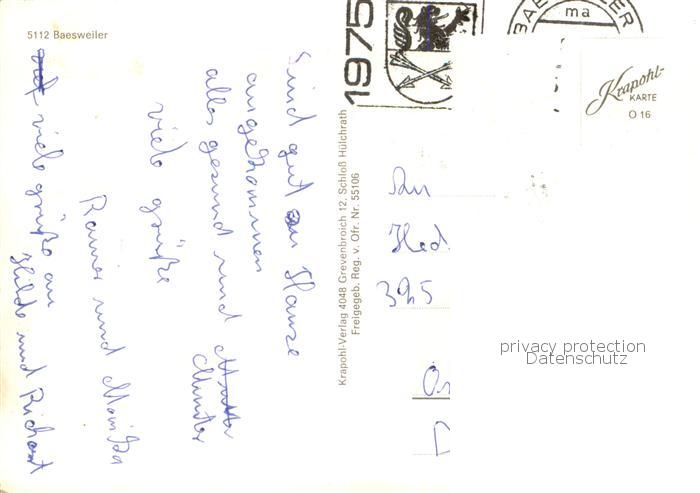 5112 Baesweiler
Sind gut zu Hause
angekommen
alles gesund und
Munter
viele Grüße
Rainer und Monika
viele grüße an
Hilde und Richard
Krapohl-Verlag 4048 Grevenbroich 12, Schloß Hülchrath
Freigegeb. Reg. v. Ofr. Nr. 55106
1975
ma
Krapohl-
KARTE
O 16
An
Hed
395
privacy protection
Datenschutz